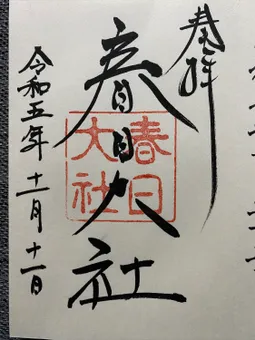 奉拝
春日大社
春日大社
令和五年十一月十一日